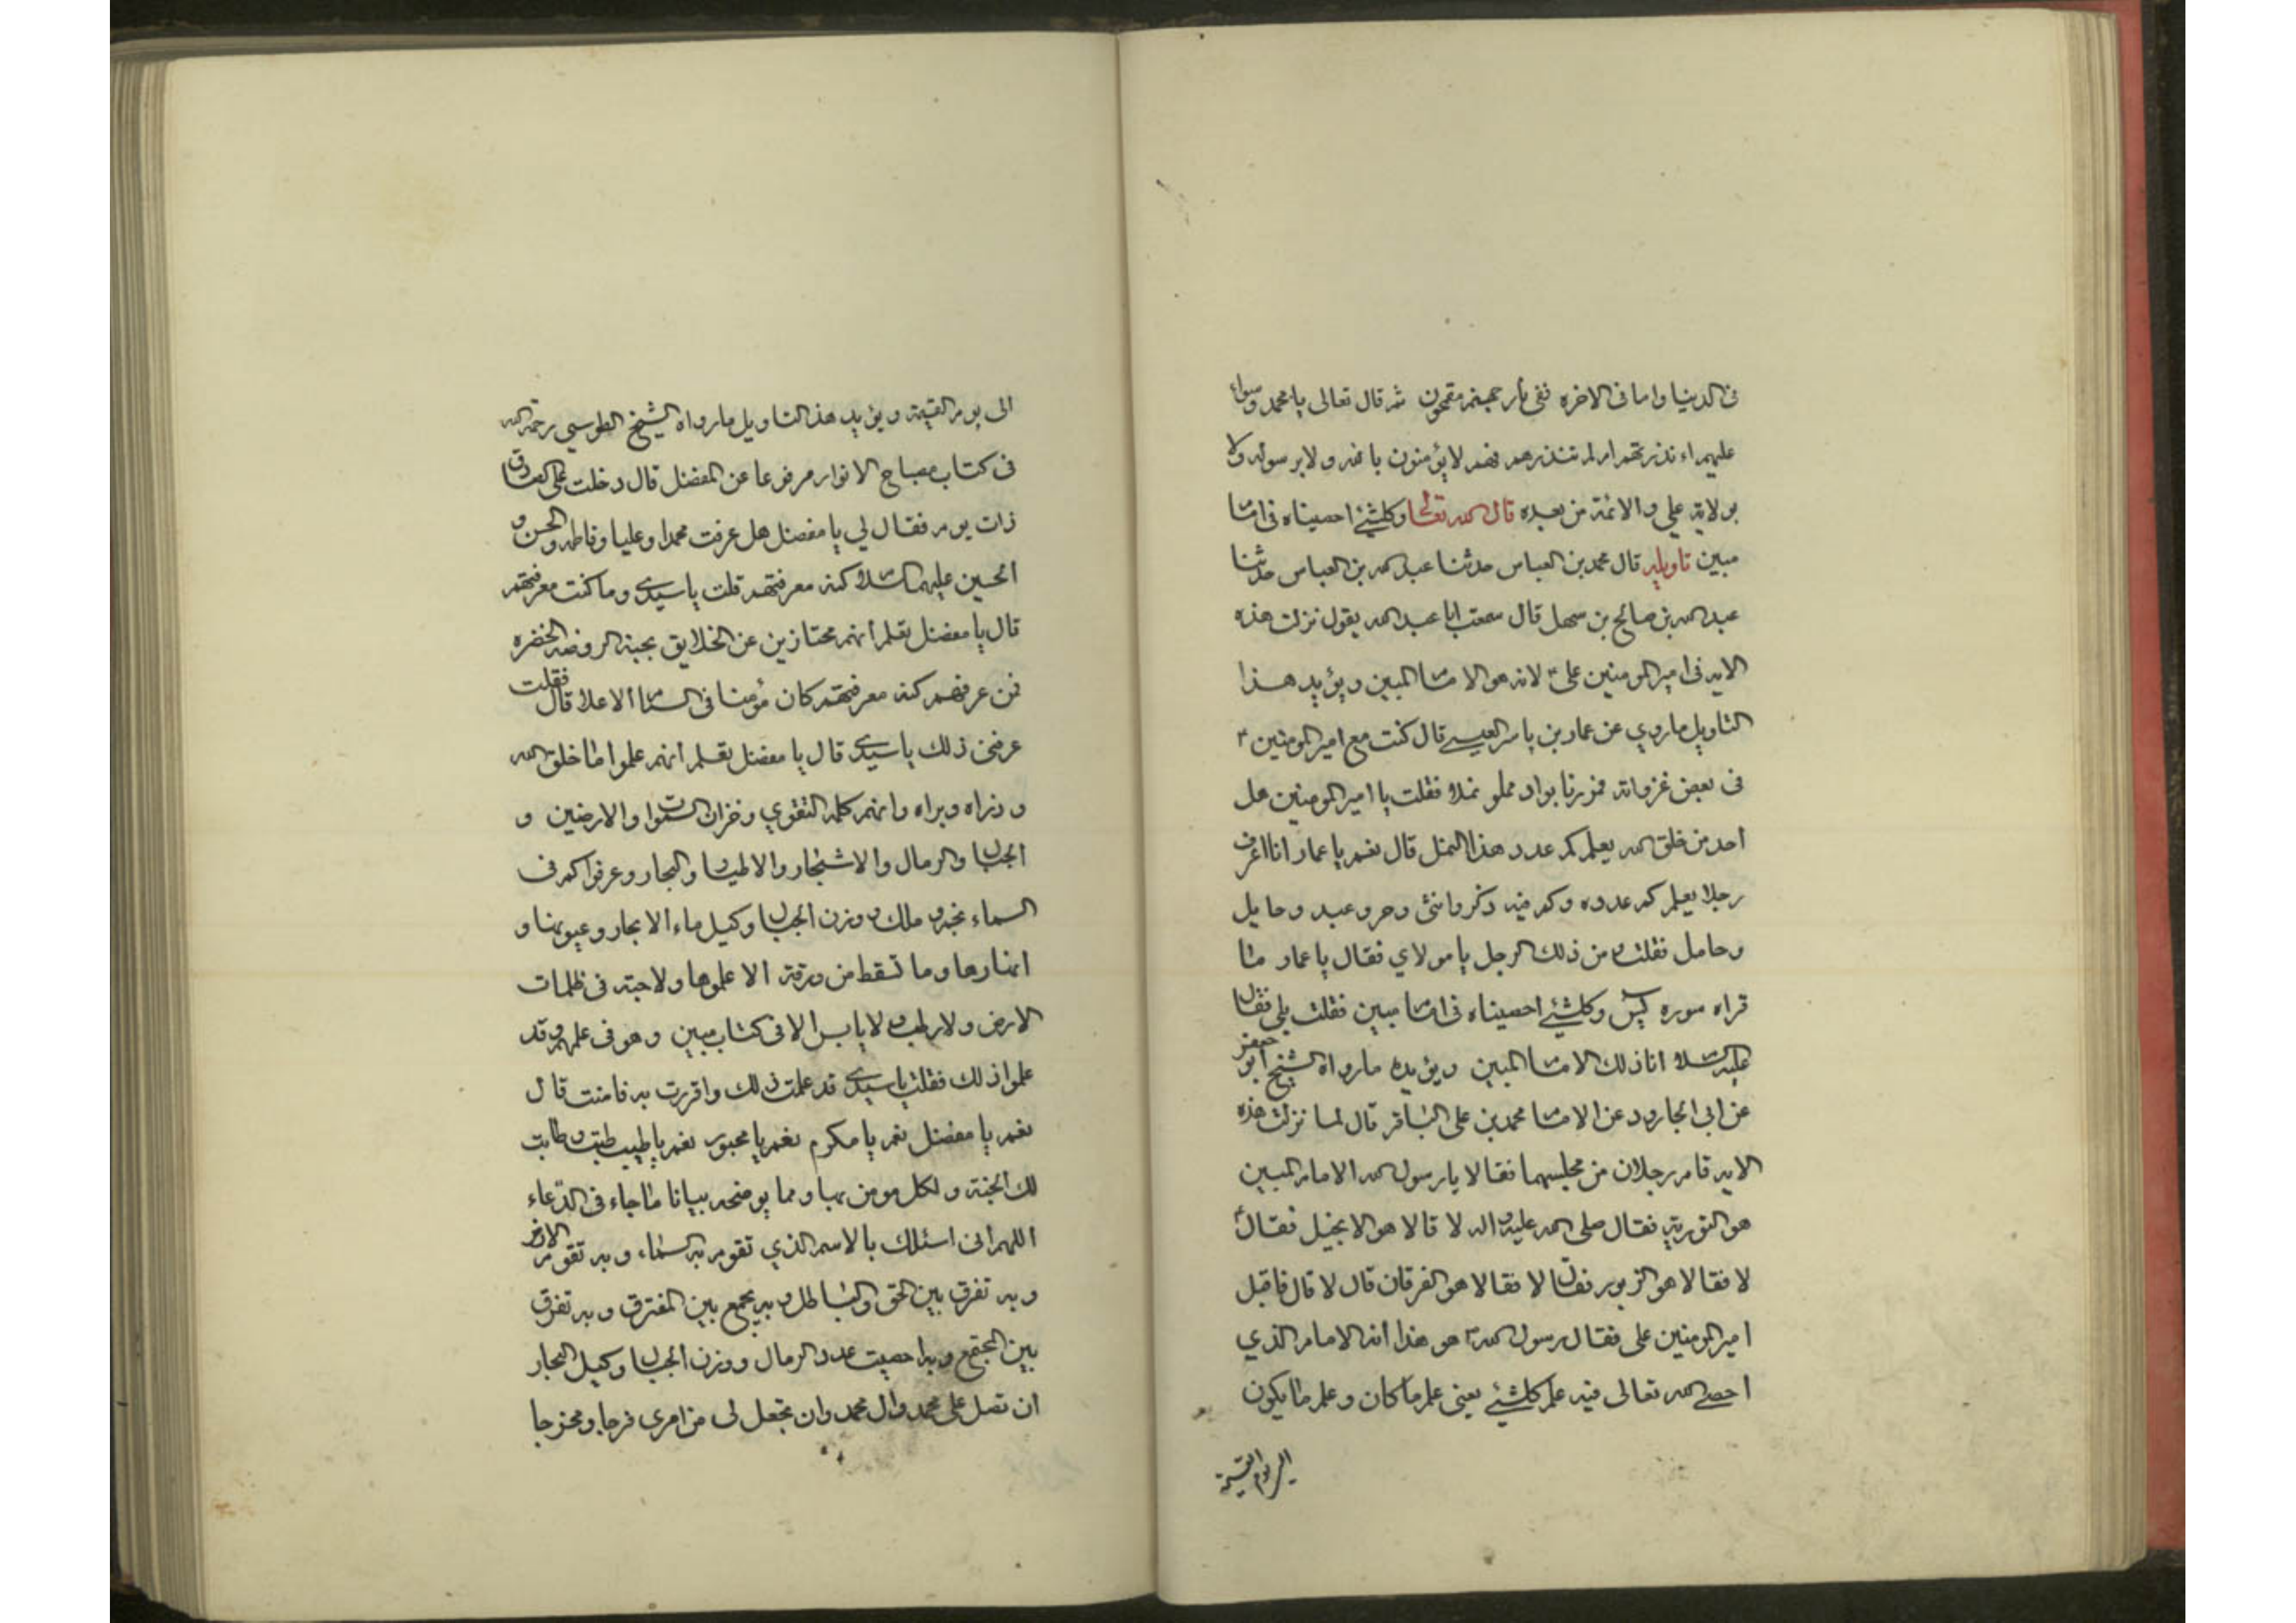 في الدنيا واما في الاخره ففي نار جهنم مقمحون ثم قال تعالى يا محمد وسواء
عليهم ءانذرتهم ام لم تنذرهم فهم لا يؤمنون بالله ولا برسوله ولا
بولاية علي والائمة من بعده قال الله تعالى وكلشئ احصيناه في امام
مبين تاويله قال محمد بن العباس حدثنا عبد الله بن العباس حدثنا
عبد الله بن صالح بن سهل قال سمعت ابا عبد الله يقول نزلت هذه
الايه في امير المومنين علي لانه هو الامام المبين ويؤيد هذا
التاويل ما روي عن عمار بن ياسر قال كنت مع امير المومنين ع
في بعض غزواته فمررنا بواد مملو نملا فقلت يا امير المومنين هل
احد من خلق الله يعلم كم عدد هذا النمل قال نعم يا عمار انا اعرف
رجلا يعلم كم عدده وكم فيه ذكر وانثى وحر وعبد وحايل
وحامل فقلت من ذلك الرجل يا مولاي فقال يا عمار ما
قراه سوره يس وكلشئ احصيناه في امام مبين فقلت بلى فقال
عليه السلام انا ذلك الامام المبين ويؤيده ما رواه الشيخ ابو جعفر
عن ابي الجارود عن الامام محمد بن علي الباقر قال لما نزلت هذه
الايه قام رجلان من مجلسهما فقالا يا رسول الله الامام المبين
هو التورية فقال صلى الله عليه واله لا قالا هو الانجيل فقال
لا فقالا هو الزبور فقال لا فقالا هو الفرقان قال لا قال فاقبل
امير المومنين علي فقال رسول الله هو هذا انه الامام الذي
احصى الله تعالى فيه علم كلشئ يعني علم ما كان وعلم ما يكون
الى يوم القيمة
الى يوم القيمة ويؤيد هذا التاويل ما رواه الشيخ الطوسي رحمة الله
في كتاب مصباح الانوار مرفوعا عن المفضل قال دخلت على الصادق
ذات يوم فقال لي يا مفضل هل عرفت محمدا وعليا وفاطمه والحسن و
الحسين عليهم السلام كنه معرفتهم قلت يا سيدي وما كنت معرفتهم
قال يا مفضل تعلم انهم محتازين عن الخلايق بجنبة الروضه الخضره
فمن عرفهم كنه معرفتهم كان مؤمنا في السنام الاعلا قال فقلت
عرفني ذلك يا سيدي قال يا مفضل تعلم انهم علموا ما خلق الله
وذراه وبراه وانهم كلمة التقوي وخزان السموات والارضين و
الجبال والرمال والاشجار والاطيار والبحار وعرفوا كم في
السماء نجم وملك ووزن الجبال وكيل ماء الابحار وعيونها و
انهارها وما تسقط من ورقة الا علموها ولا حبة في ظلمات
الارض ولا رطب ولا يابس الا في كتاب مبين وهو في علمهم وقد
علموا ذلك فقلت يا سيدي قد علمت ذلك واقررت به فامنت قال
نعم يا مفضل نعم يا مكرم نعم يا محبور نعم يا طيب طبت وطابت
لك الجنة ولكل مومن بها ومما يوضحه بيانا ما جاء في الدعاء
اللهم اني اسئلك بالاسم الذي تقوم به السماء وبه تقوم الارض
وبه تفرق بين الحق والباطل وبه يجمع بين المفترق وبه تفرق
بين المجتمع وبه احصيت عدد الرمال ووزن الجبال وكيل البحار
ان تصل على محمد وال محمد وان تجعل لي من امري فرجا ومخرجا